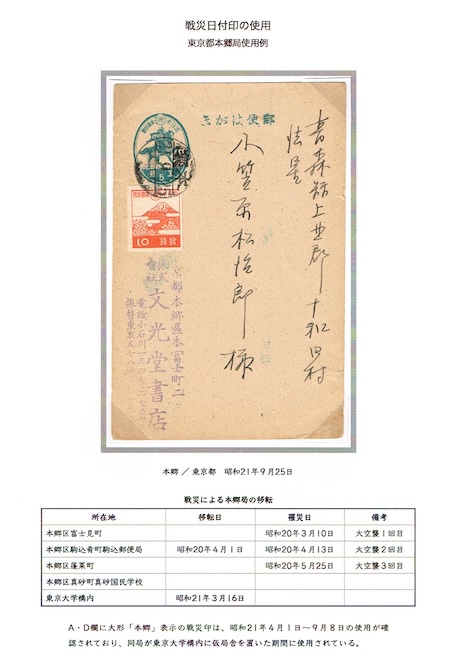 戦災日付印の使用
東京都本郷局使用例
郵便はがき
青森縣上北郡十和田村
法量
小笠原松治郎 様
10 拾銭
京都本郷區本富士町二
株式會社 文光堂書店
電話小石川
振替東京
本郷 ／ 東京都　昭和21年9月25日
戦災による本郷局の移転
所在地 移転日 罹災日 備考
本郷区富士見町 昭和20年3月10日 大空襲1回目
本郷区駒込肴町駒込郵便局 昭和20年4月1日 昭和20年4月13日 大空襲2回目
本郷区蓬莱町 昭和20年5月25日 大空襲3回目
本郷区真砂町真砂国民学校
東京大学構内 昭和21年3月16日
A・D欄に大形「本郷」表示の戦災印は、昭和21年4月1日～9月8日の使用が確
認されており、同局が東京大学構内に仮局舎を置いた期間に使用されている。